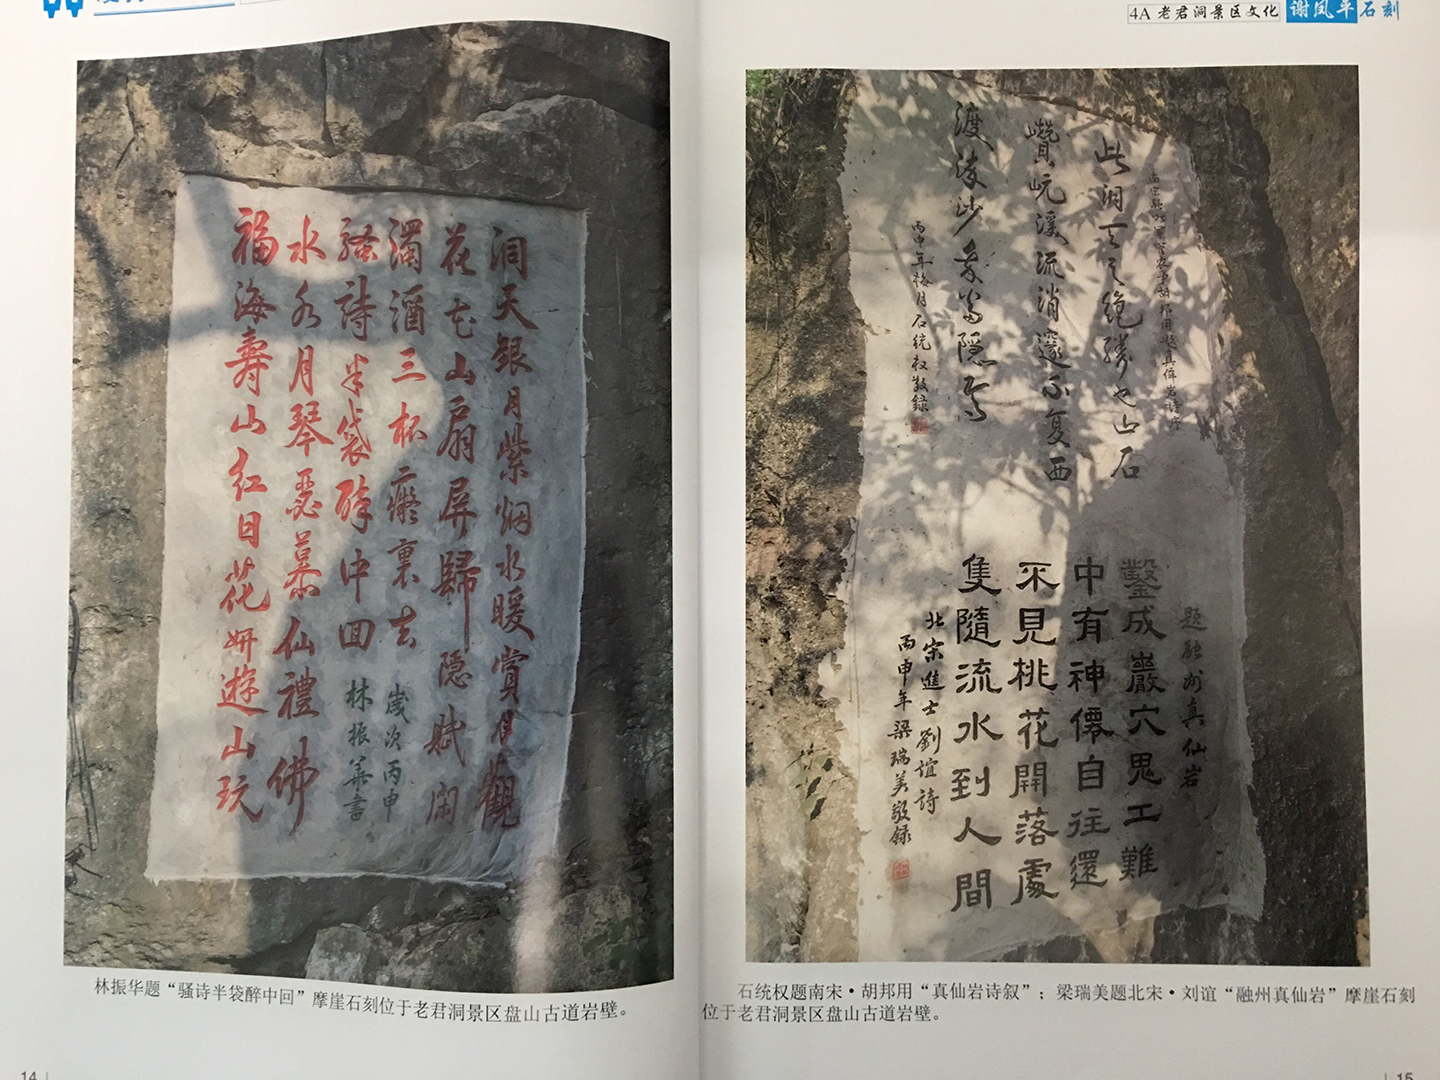 4A 老君洞景区文化 谢凤平石刻
洞天银月紫烟水暖赏月觀
花七山扇屏歸隐赋闲
濁酒三杯癡裏去
騷詩半袋醉中回
水水月琴瑟慕仙禮佛
福海壽山红日花妍遊山玩
歲次丙申
林振華書
此洞天之绝勝也山石
巑岏溪流消邃不复西
渡流沙矣當隱焉
丙申年梅月石统权敬録
题融州真仙岩
鑿成巖穴鬼工難
中有神僊自往還
不見桃花開落處
隻隨流水到人間
北宋進士劉誼詩
丙申年梁瑞美敬録
林振华题“骚诗半袋醉中回”摩崖石刻位于老君洞景区盘山古道岩壁。
石统权题南宋·胡邦用“真仙岩诗叙”；梁瑞美题北宋·刘谊“融州真仙岩”摩崖石刻
位于老君洞景区盘山古道岩壁。
14
15